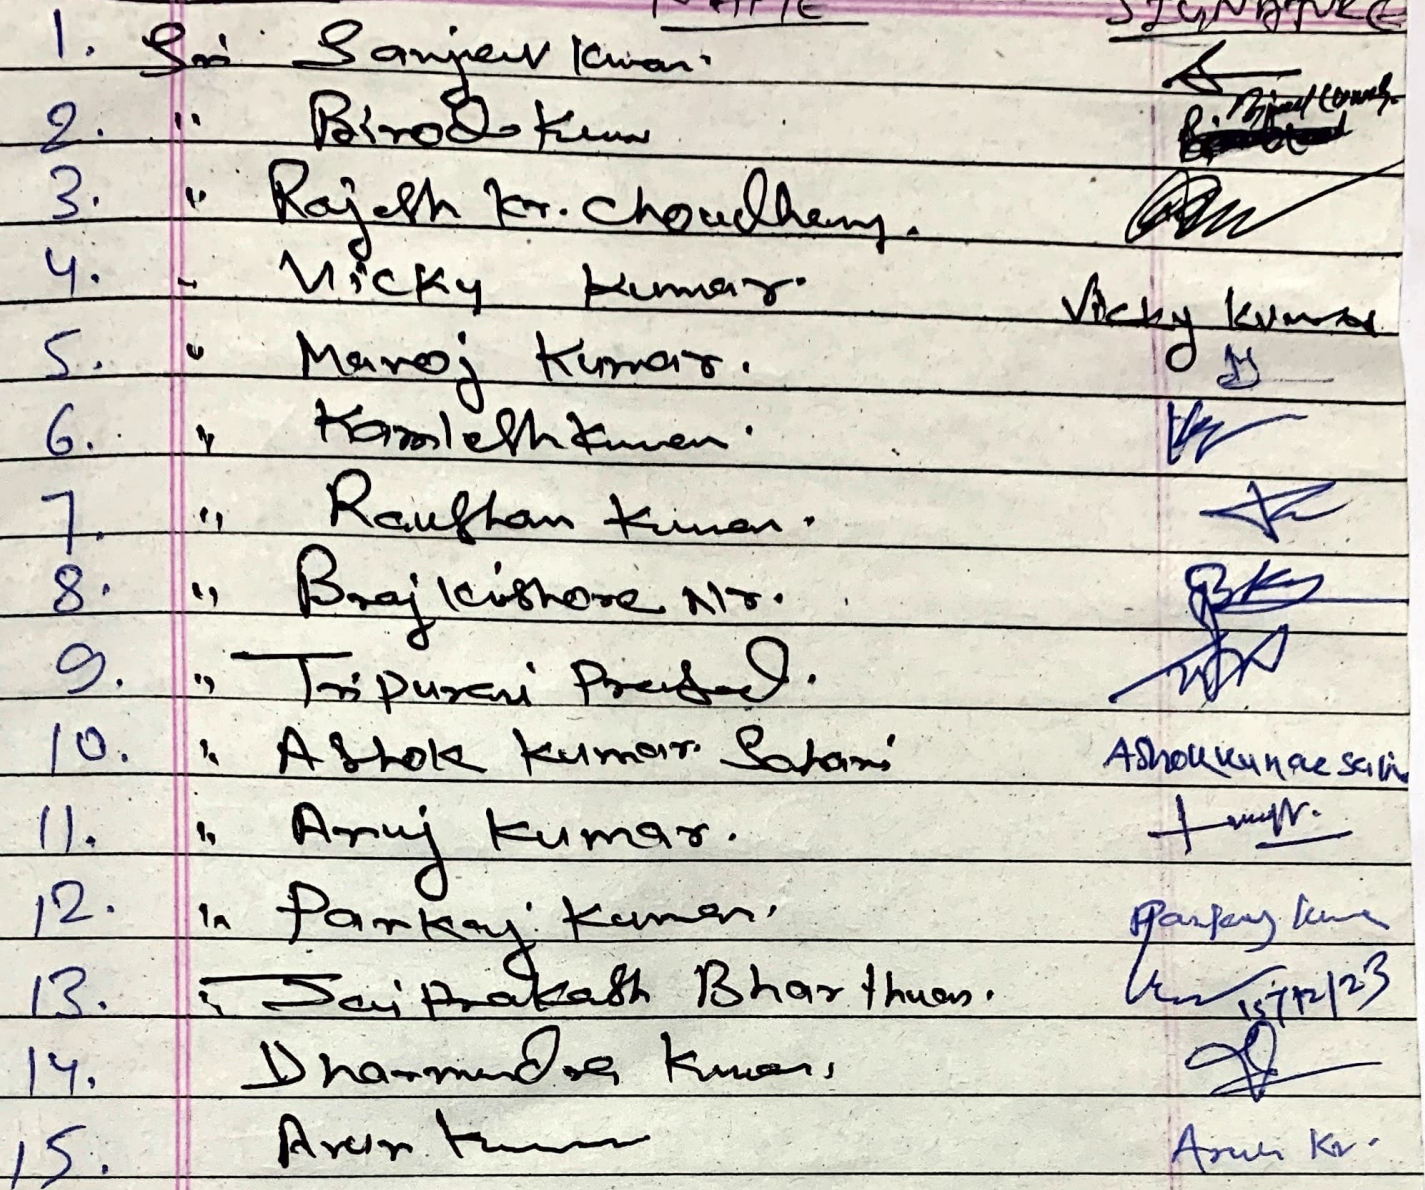 NAME SIGNATURE
1. Sri Sanjeev Kumar.
2. " Birod Kum Binod Kumar
3. " Rajesh Kr. Choudhary.
4. " Vicky Kumar. Vicky Kumar
5. " Manoj Kumar.
6. " Kamlesh Kumar.
7. " Raushan Kumar.
8. " Braj Kishore Nr.
9. " Tripurari Prasad.
10. " Ashok Kumar Sahani Ashok Kumar Sahni
11. " Anuj Kumar.
12. " Pankaj Kumar. Pankaj Kumar
13. " Jai Prakash Bharthuar. 15/12/23
14. Dharmendra Kumar.
15. Arun Kumar Arun Kr.